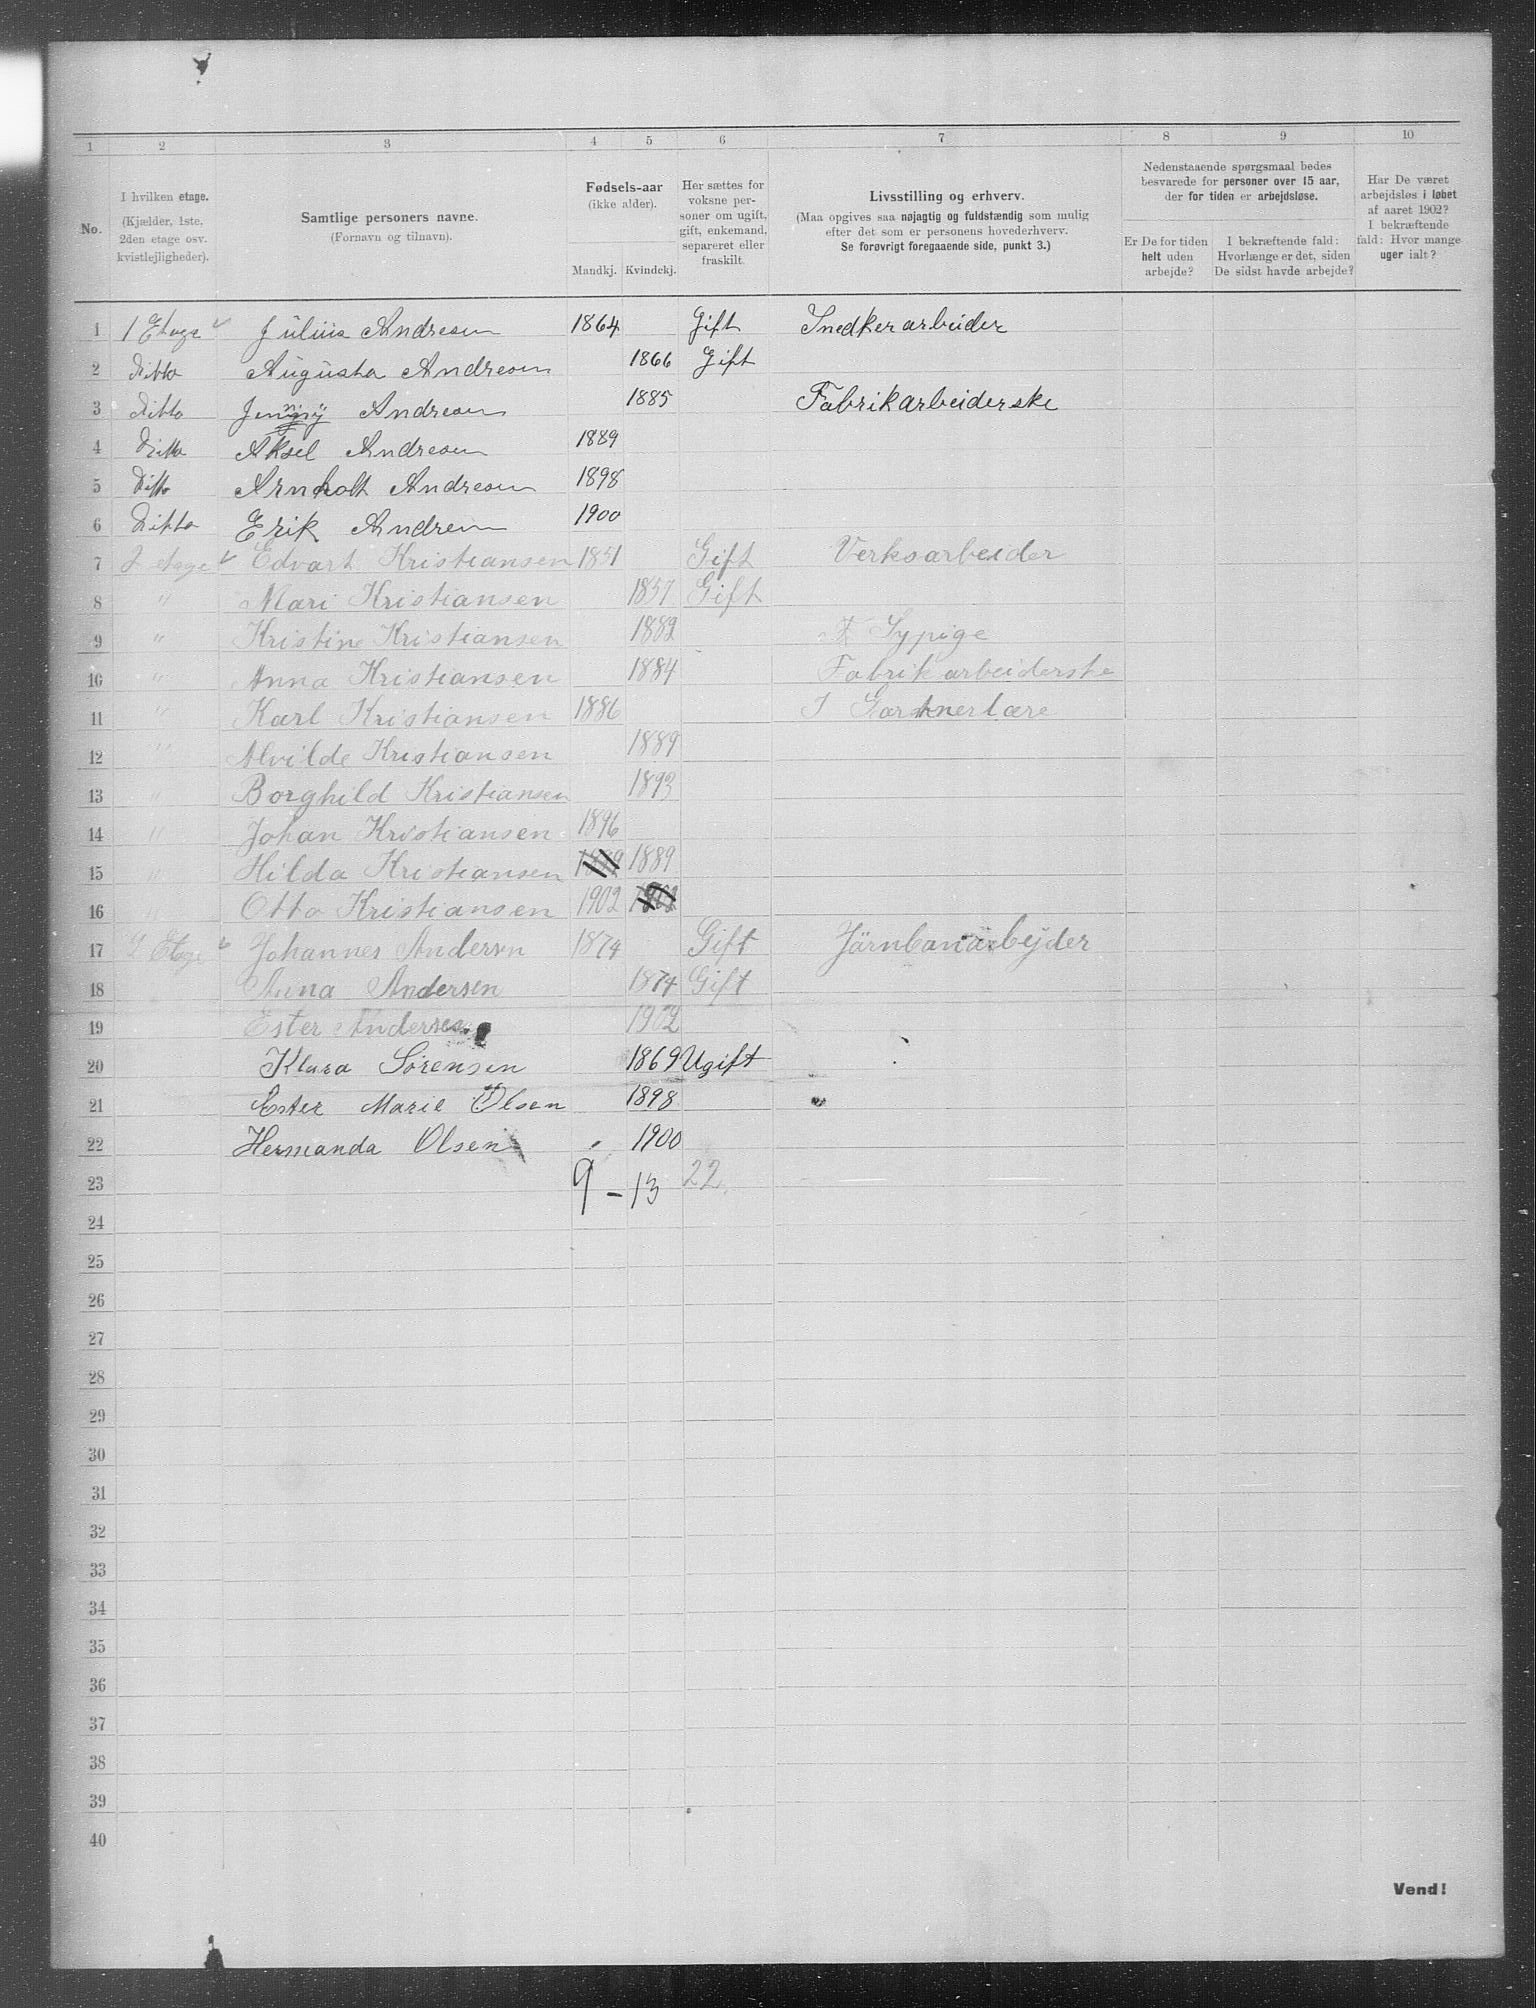 1 2 3 4 5 6 7 8 9 10
No.
I hvilken etage.
(Kjælder, 1ste,
2den etage osv.
kvistlejligheder).
Samtlige personers navne.
(Fornavn og tilnavn).
Fødsels-aar
(ikke alder).
Mandkj. Kvindekj.
Her sættes for
voksne per-
soner om ugift,
gift, enkemand,
separeret eller
fraskilt.
Livsstilling og erhverv.
(Maa opgives saa nøjagtig og fuldstændig som mulig
efter det som er personens hovederhverv.
Se forøvrigt foregaaende side, punkt 3.)
Nedenstaaende spørgsmaal bedes
besvarede for personer over 15 aar,
der for tiden er arbejdsløse.
Er De for tiden
helt uden
arbejde?
I bekræftende fald:
Hvorlænge er det, siden
De sidst havde arbejde?
Har De været
arbejdsløs i løbet
af aaret 1902?
I bekræftende
fald: Hvor mange
uger ialt?
1 1 Etage Julius Andresen 1864 Gift Snedkerarbeider
2 Ditto Augusta Andresen 1866 Gift
3 Ditto Jenny Andresen 1885 Fabrikarbeiderske
4 Ditto Aksel Andresen 1889
5 Ditto Arnholt Andresen 1898
6 Ditto Erik Andresen 1900
7 2 etage Edvart Kristiansen 1851 Gift Verksarbeider
8 " Mari Kristiansen 1857 Gift
9 " Kristine Kristiansen 1882 Sypige
10 " Anna Kristiansen 1884 Fabrikarbeiderske
11 " Karl Kristiansen 1886 I Gartnerlære
12 " Alvilde Kristiansen 1889
13 " Borghild Kristiansen 1893
14 " Johan Kristiansen 1896
15 " Hilda Kristiansen 1889
16 " Otto Kristiansen 1902
17 2 Etage Johannes Andersen 1874 Gift Järnbanarbejder
18 Anna Andersen 1874 Gift
19 Ester Andersen 1902
20 Klara Sörensen 1869 Ugift
21 Ester Marie Olsen 1898
22 Hermanda Olsen 1900
23 9 - 13 22
24
25
26
27
28
29
30
31
32
33
34
35
36
37
38
39
40
Vend!